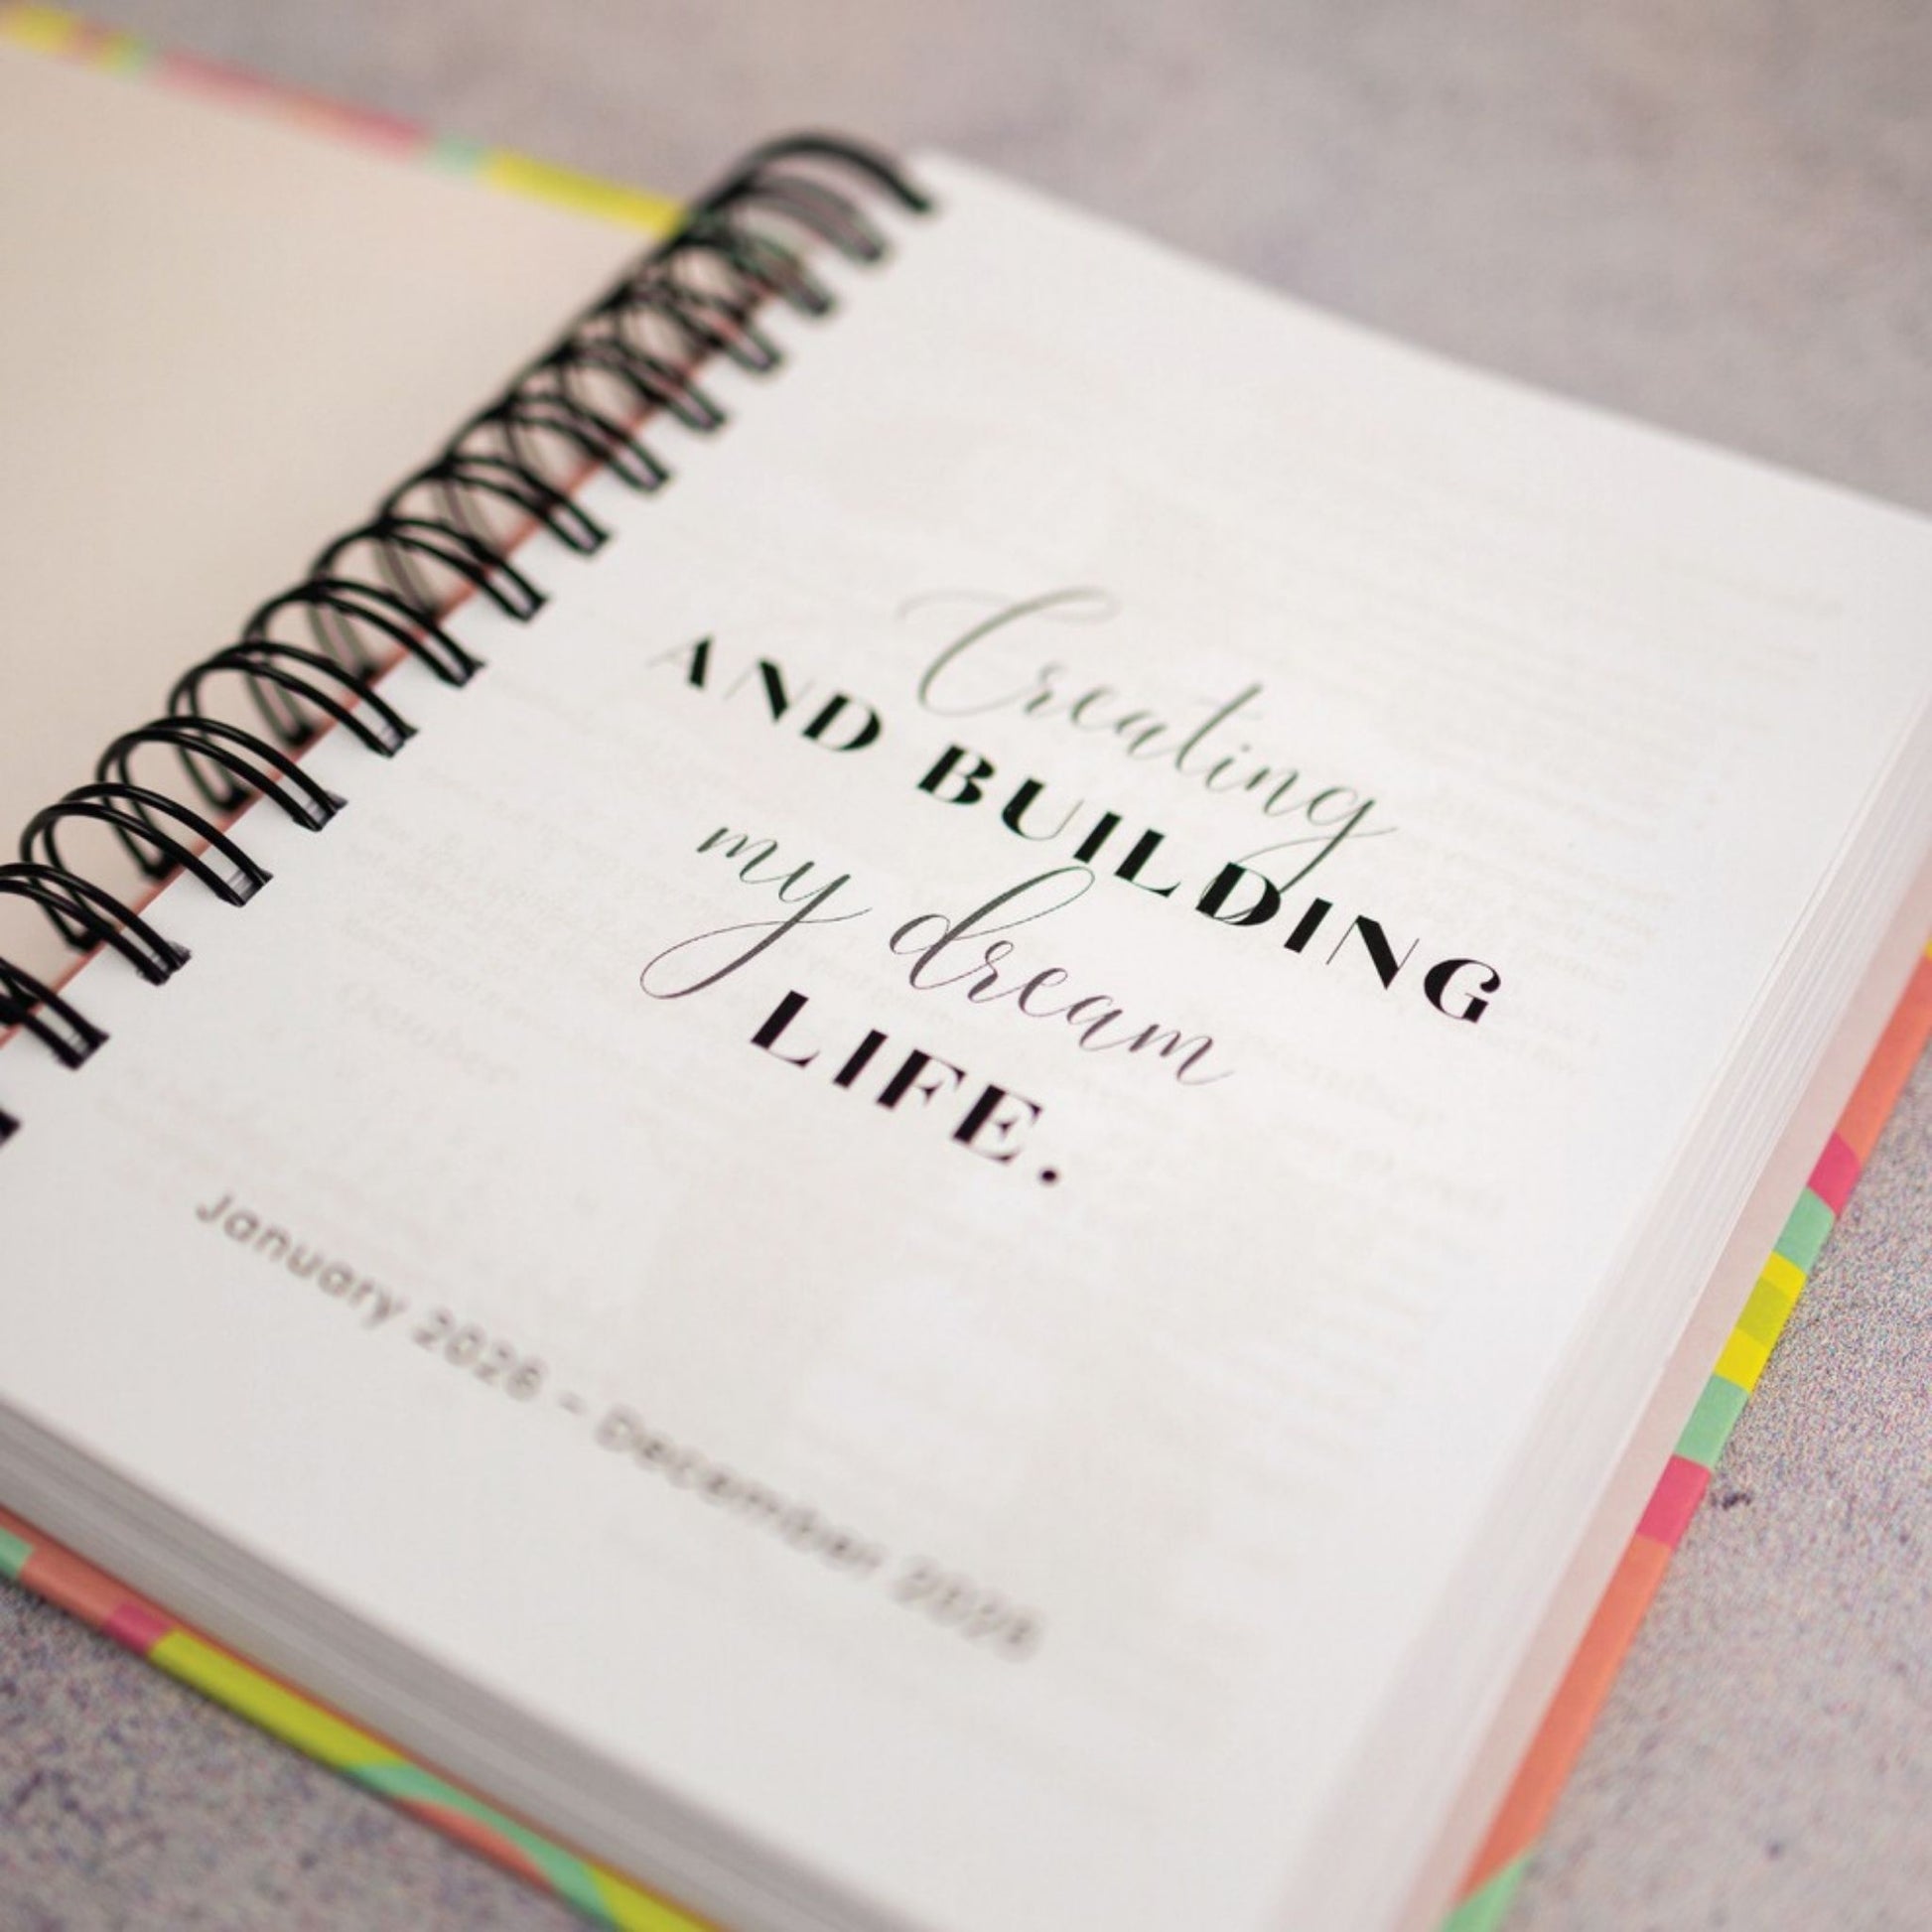 Creating
AND BUILDING
my dream
LIFE.
January 2026 - December 2026